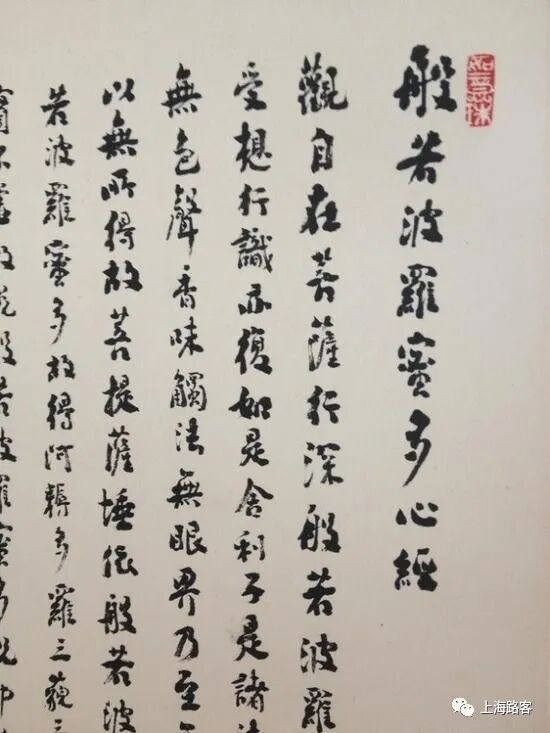 如意珠
般若波羅蜜多心經
觀自在菩薩行深般若波羅
受想行識亦復如是舍利子是諸法
無色聲香味觸法無眼界乃至
以無所得故菩提薩埵依般若波
若波羅蜜多故得阿耨多羅三藐三
實不虛故說般若波羅蜜多咒即
上海路客